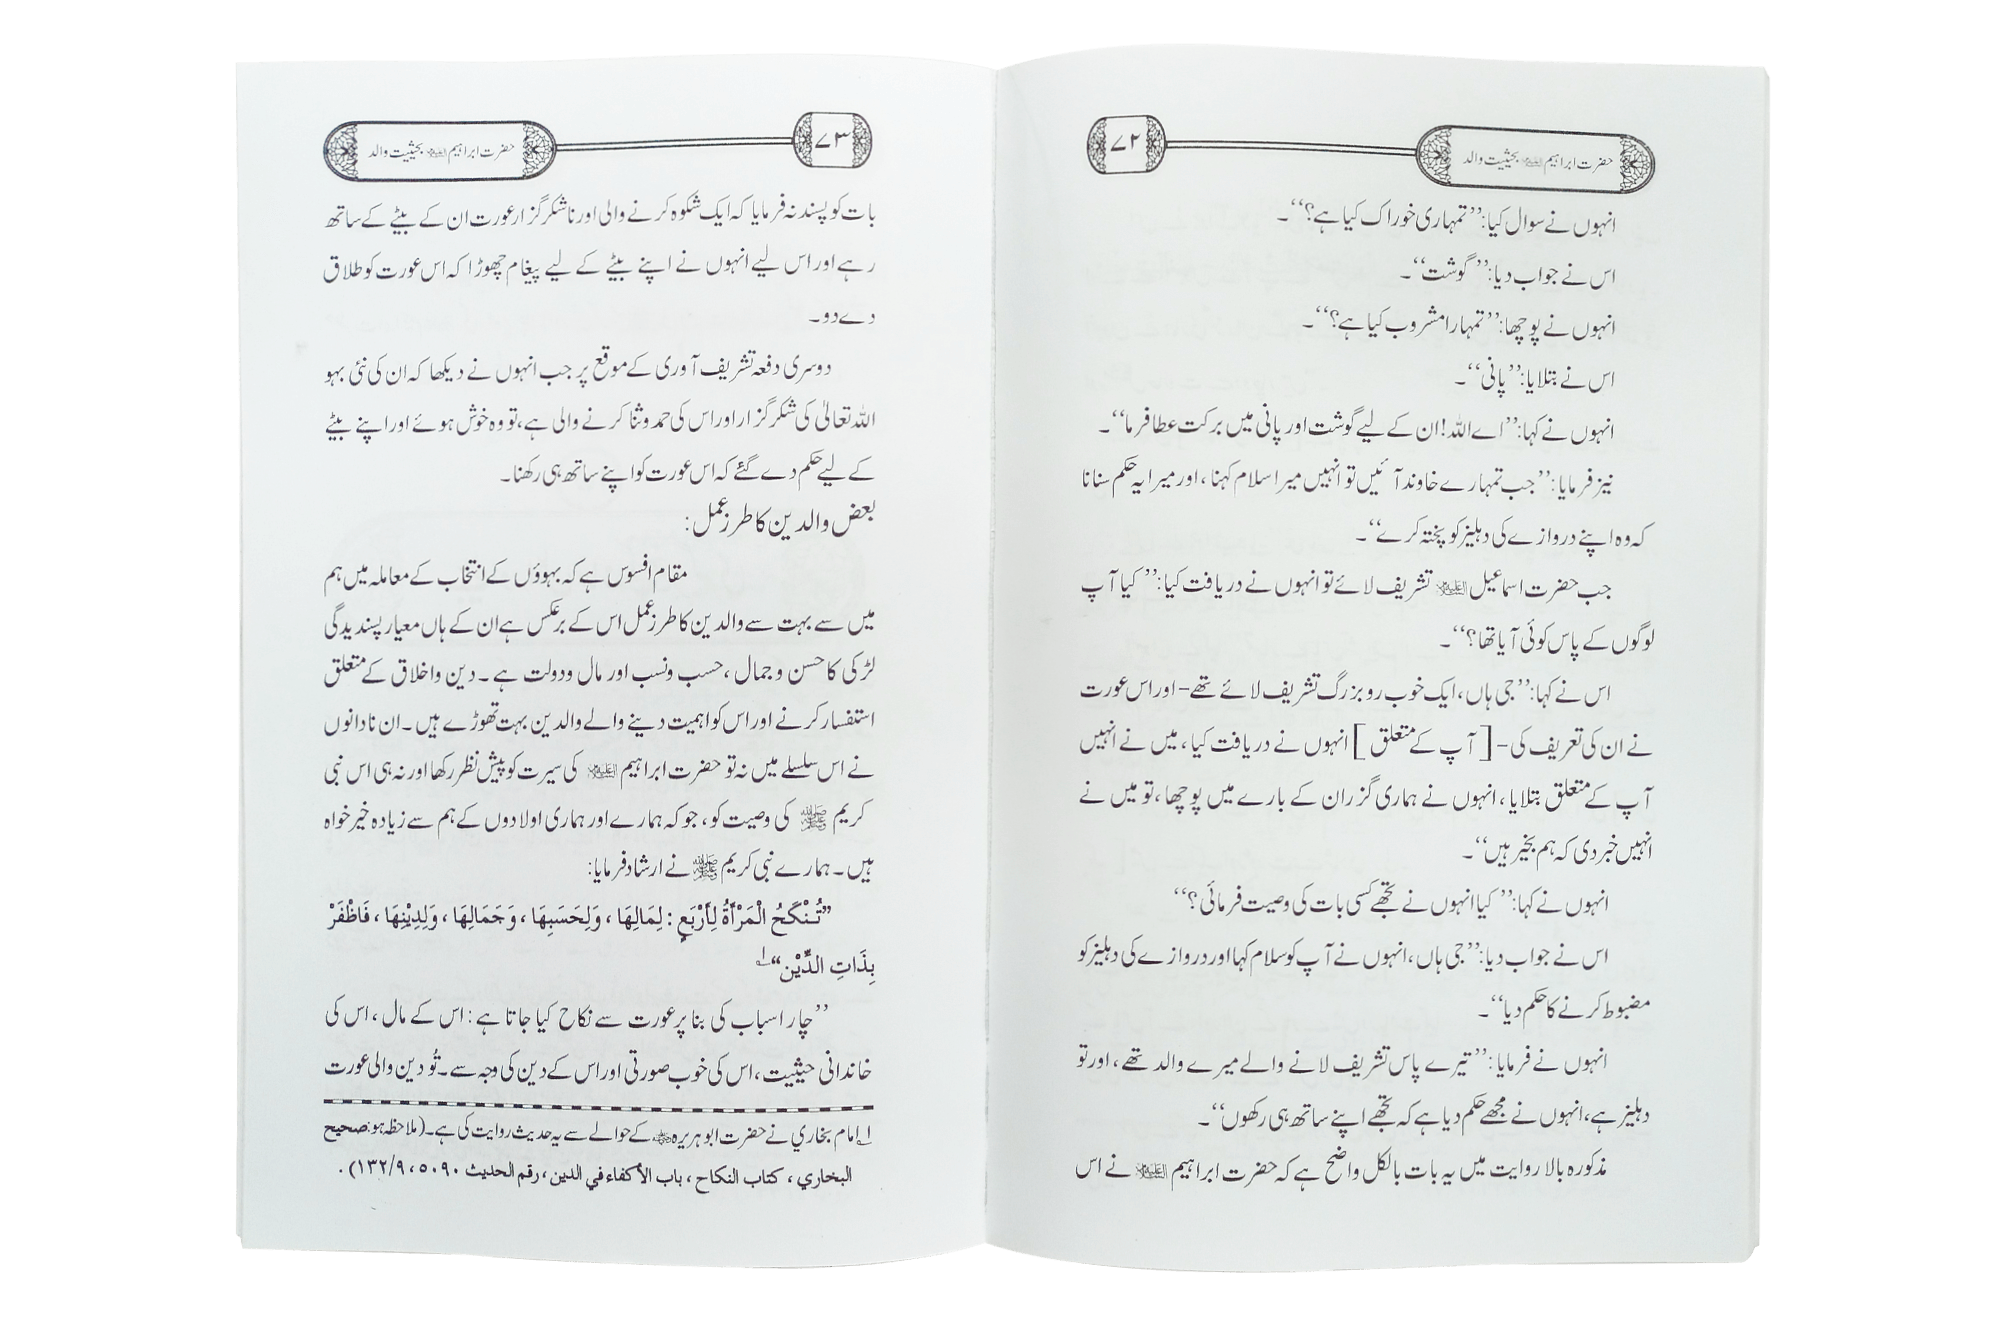 حضرت ابراہیم علیہ السلام بحیثیت والد
۷۲
انہوں نے سوال کیا: ’’تمہاری خوراک کیا ہے؟‘‘۔
اس نے جواب دیا: ’’گوشت‘‘۔
انہوں نے پوچھا: ’’تمہارا مشروب کیا ہے؟‘‘۔
اس نے بتلایا: ’’پانی‘‘۔
انہوں نے کہا: ’’اے اللہ! ان کے لیے گوشت اور پانی میں برکت عطا فرما‘‘۔
نیز فرمایا: ’’جب تمہارے خاوند آئیں تو انہیں میرا سلام کہنا، اور میرا یہ حکم سنانا
کہ وہ اپنے دروازے کی دہلیز کو پختہ کرے‘‘۔
جب حضرت اسماعیل علیہ السلام تشریف لائے تو انہوں نے دریافت کیا: ’’کیا آپ
لوگوں کے پاس کوئی آیا تھا؟‘‘۔
اس نے کہا: ’’جی ہاں، ایک خوب رو بزرگ تشریف لائے تھے- اور اس عورت
نے ان کی تعریف کی- [آپ کے متعلق] انہوں نے دریافت کیا، میں نے انہیں
آپ کے متعلق بتلایا، انہوں نے ہماری گزران کے بارے میں پوچھا، تو میں نے
انہیں خبر دی کہ ہم بخیر ہیں‘‘۔
انہوں نے کہا: ’’کیا انہوں نے تجھے کسی بات کی وصیت فرمائی؟‘‘
اس نے جواب دیا: ’’جی ہاں، انہوں نے آپ کو سلام کہا اور دروازے کی دہلیز کو
مضبوط کرنے کا حکم دیا‘‘۔
انہوں نے فرمایا: ’’تیرے پاس تشریف لانے والے میرے والد تھے، اور تو
دہلیز ہے، انہوں نے مجھے حکم دیا ہے کہ تجھے اپنے ساتھ ہی رکھوں‘‘۔
مذکورہ بالا روایت میں یہ بات بالکل واضح ہے کہ حضرت ابراہیم علیہ السلام نے اس
۷۳
حضرت ابراہیم علیہ السلام بحیثیت والد
بات کو پسند نہ فرمایا کہ ایک شکوہ کرنے والی اور ناشکر گزار عورت ان کے بیٹے کے ساتھ
رہے اور اس لیے انہوں نے اپنے بیٹے کے لیے پیغام چھوڑا کہ اس عورت کو طلاق
دے دو۔
دوسری دفعہ تشریف آوری کے موقع پر جب انہوں نے دیکھا کہ ان کی نئی بہو
اللہ تعالیٰ کی شکر گزار اور اس کی حمد و ثنا کرنے والی ہے، تو وہ خوش ہوئے اور اپنے بیٹے
کے لیے حکم دے گئے کہ اس عورت کو اپنے ساتھ ہی رکھنا۔
بعض والدین کا طرز عمل:
مقام افسوس ہے کہ بہوؤں کے انتخاب کے معاملہ میں ہم
میں سے بہت سے والدین کا طرز عمل اس کے برعکس ہے ان کے ہاں معیار پسندیدگی
لڑکی کا حسن و جمال، حسب ونسب اور مال ودولت ہے۔ دین واخلاق کے متعلق
استفسار کرنے اور اس کو اہمیت دینے والے والدین بہت تھوڑے ہیں۔ ان نادانوں
نے اس سلسلے میں نہ تو حضرت ابراہیم علیہ السلام کی سیرت کو پیش نظر رکھا اور نہ ہی اس نبی
کریم ﷺ کی وصیت کو، جو کہ ہمارے اور ہماری اولادوں کے ہم سے زیادہ خیر خواہ
ہیں۔ ہمارے نبی کریم ﷺ نے ارشاد فرمایا:
”تُنْكَحُ الْمَرْأَةُ لِأَرْبَعٍ: لِمَالِهَا، وَلِحَسَبِهَا، وَجَمَالِهَا، وَلِدِيْنِهَا، فَاظْفَرْ
بِذَاتِ الدِّيْنِ“ ۱؎
’’چار اسباب کی بنا پر عورت سے نکاح کیا جاتا ہے: اس کے مال، اس کی
خاندانی حیثیت، اس کی خوب صورتی اور اس کے دین کی وجہ سے۔ تُو دین والی عورت
۱؎ امام بخاري نے حضرت ابو ہریرہ رضی اللہ عنہ کے حوالے سے یہ حدیث روایت کی ہے۔ (ملاحظہ ہو: صحیح
البخاري، كتاب النكاح، باب الأكفاء في الدين، رقم الحديث ٥٠٩٠، ١٣٢/٩).